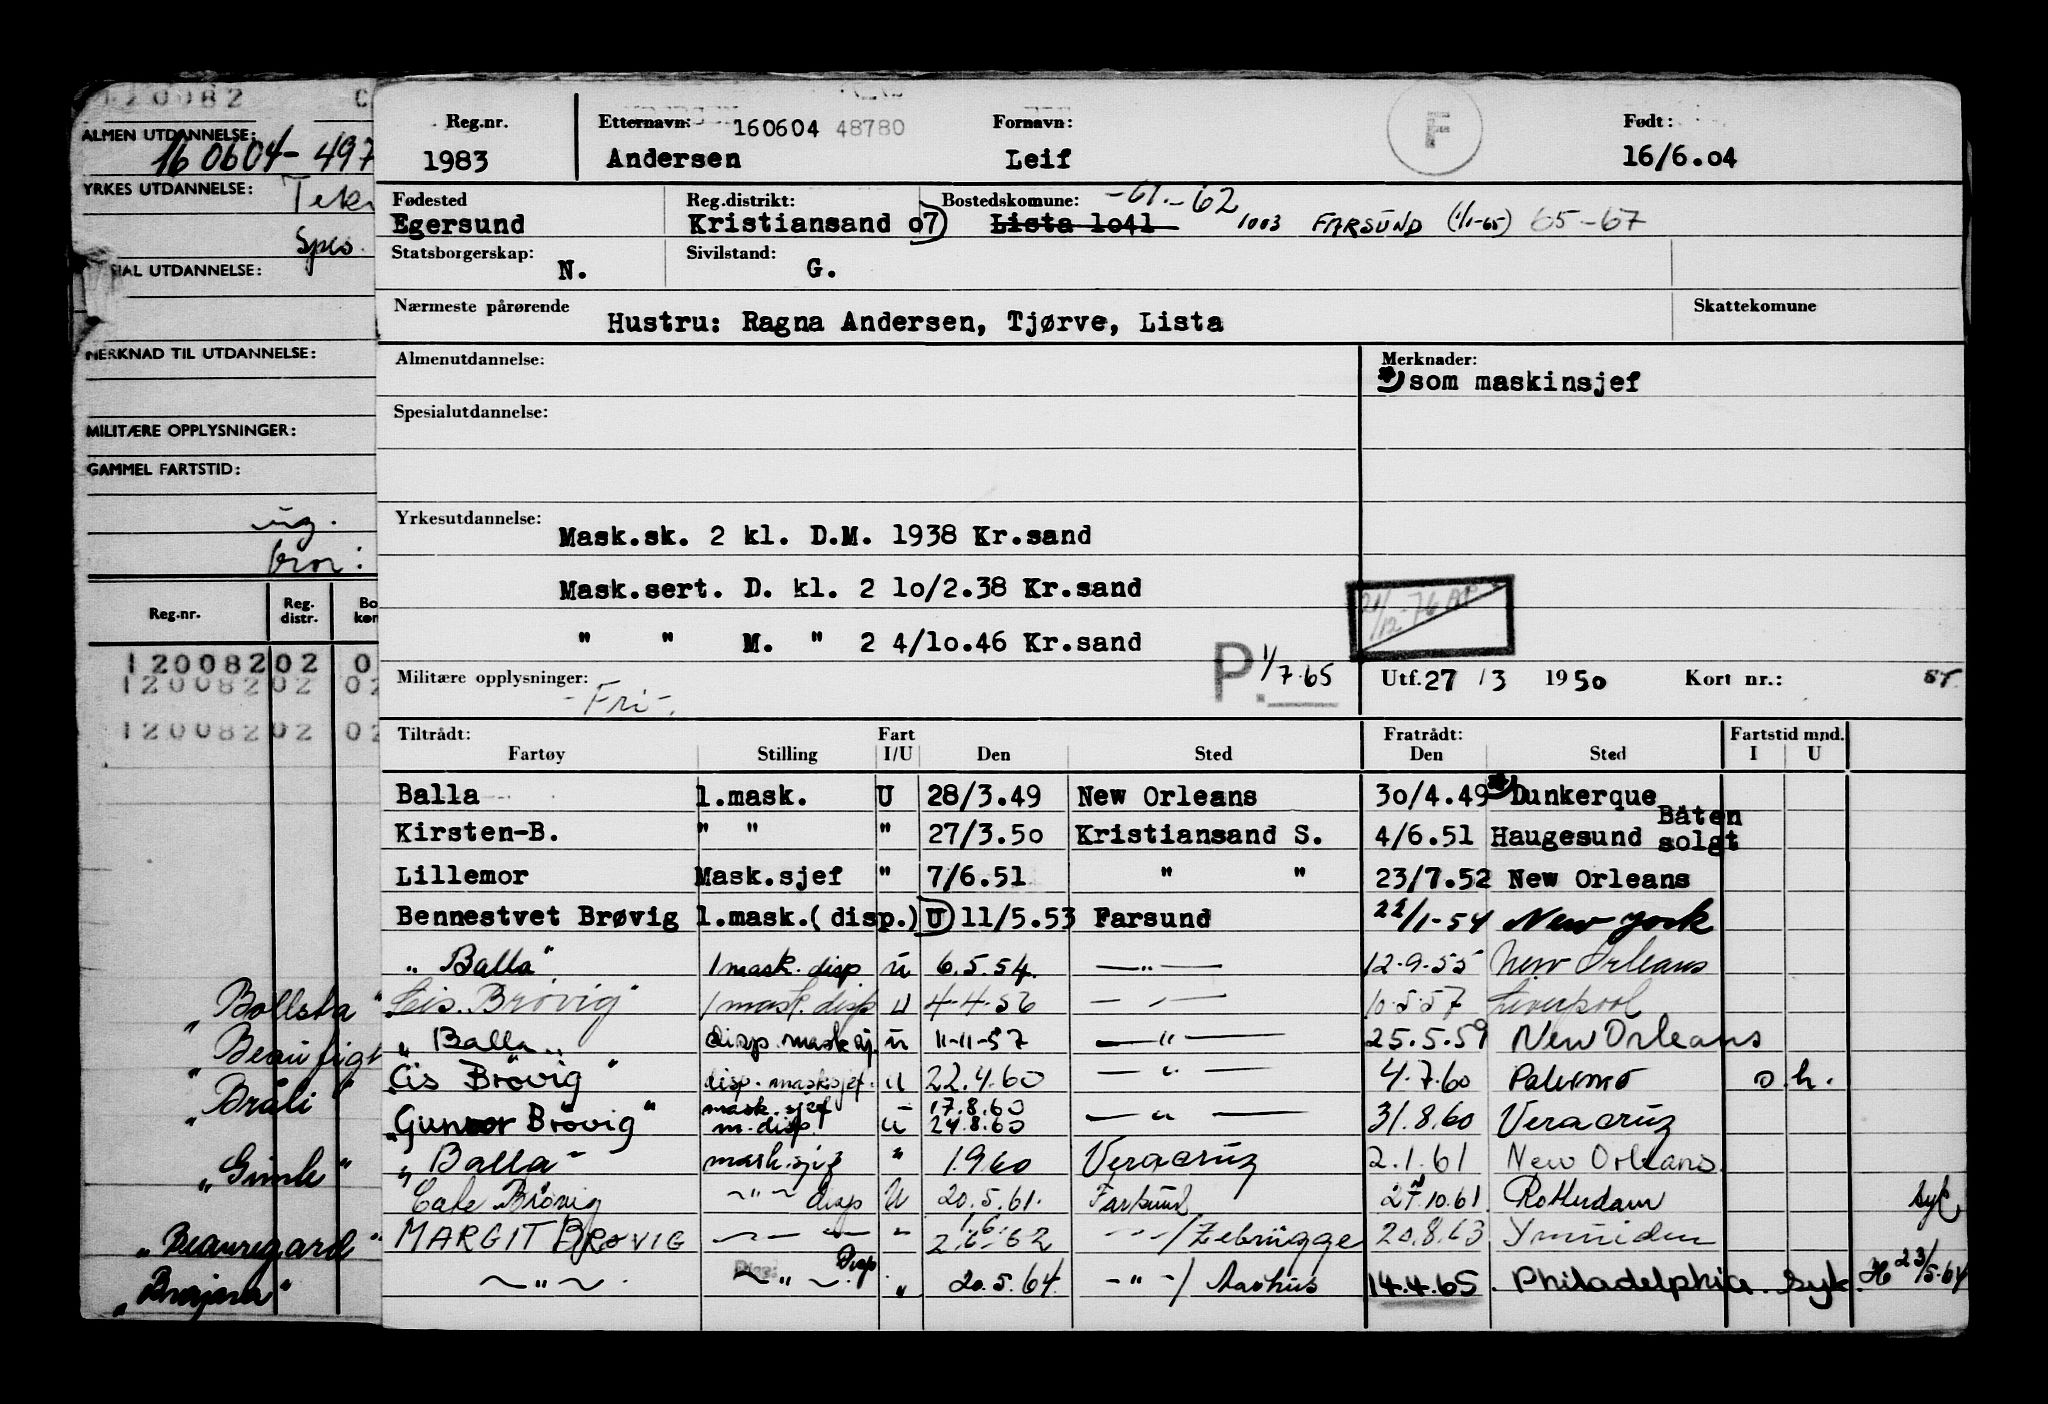 120082
ALMEN UTDANNELSE:
160604-497
YRKES UTDANNELSE:
Spes.
SIAL UTDANNELSE:
MERKNAD TIL UTDANNELSE:
MILITÆRE OPPLYSNINGER:
GAMMEL FARTSTID:
ug.
bror:
Reg.nr. Reg. distr. Bo kom
12008202 0
12008202 02
12008202 02
"Bollsta"
"Beau
"Bråli"
"Gimle"
"Beauregard"
Reg.nr. Etternavn: 160604 48780 Fornavn: F Født:
1983 Andersen Leif 16/6.04
Fødested Reg.distrikt: Bostedskomune: -61.-62
Egersund Kristiansand 07) Lista 1041 1003 FARSUND (1/1-65) 65-67
Statsborgerskap: N. Sivilstand: G.
Nærmeste pårørende Hustru: Ragna Andersen, Tjørve, Lista Skattekomune
Almenutdannelse: Merknader:
*)som maskinsjef
Spesialutdannelse:
Yrkesutdannelse: Mask.sk. 2 kl. D.M. 1938 Kr.sand
Mask.sert. D. kl. 2 10/2.38 Kr.sand
21/12-76
" " M. " 2 4/10.46 Kr.sand
Militære opplysninger: -Fri-. P. 1/7.65 Utf.27 /3 1950 Kort nr.:
Tiltrådt: Fart Fratrådt: Fartstid mnd.
Fartøy Stilling I/U Den Sted Den Sted I U
Balla 1.mask. U 28/3.49 New Orleans 30/4.49*) Dunkerque
Kirsten-B. " " " 27/3.50 Kristiansand S. 4/6.51 Haugesund Båten solgt
Lillemor Mask.sjef " 7/6.51 " " 23/7.52 New Orleans
Bennestvet Brøvig 1.mask.(disp.) U) 11/5.53 Farsund 22/1-54 New York
"Balla" 1 mask. disp u 6.5.54. —"— 12-9-55 New Orleans
Cis. Brøvig" 1 mask. disp U 4-4-56 — " — 10-5-57 Liverpool
"Balla" disp. masksj. u 11-11-57 —"— 25.5.59 New Orleans
Cis Brøvig" disp. masksjef. U 22.4.60 —"— 4.7.60 Palermo o.h.
"Gunvor Brøvig" mask.sjef m. disp. u 17.8.60 24.8.60 —"— 31.8.60 Veracruz
"Balla" mask.sjef " 1.9.60 Veracruz 2.1.61 New Orleans.
Cate Brøvig —"— disp U 20.5.61. Farsund 27.10.61 Rotterdam Syk
MARGIT BRØVIG —"— " 2.6.62 -"-/Zebrügge 20.8.63 Ymuiden
—"—. —"—. Disp " 20.5.64. -"-/ Aarhus 14.4.65. Philadelphia. syk. H 23/5-64